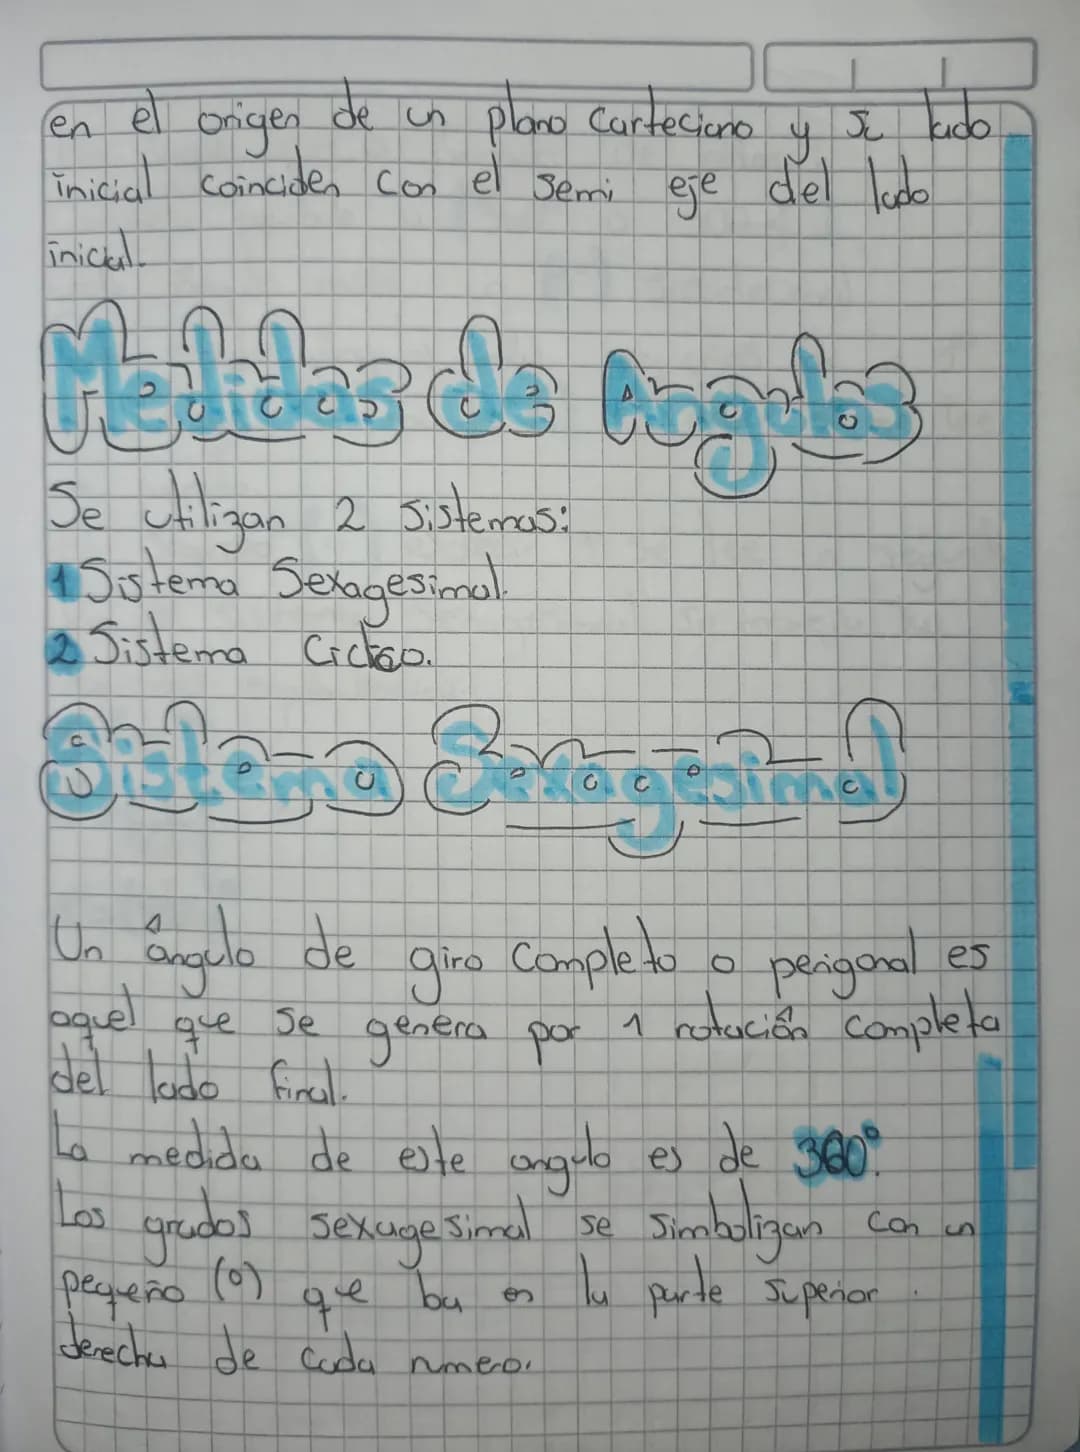 en el origen de un plano Carteciano y su lado
inicial coinciden con el semi eje del lado
inicial.
Medidas de Angulos
Se utilizan 2 sistemas:
1 Sistema Sexagesimal.
2 Sistema
Sistema Sexagesimal
Un ángulo de giro completo o perigonal es
aquel que se genera por 1 rotación completa
del lado final.
La medida de este angulo es de 360°.
Los grados sexagesimal se simbolizan con un
pequeño (o) que ba en la parte superior.
derecha de cada numero.